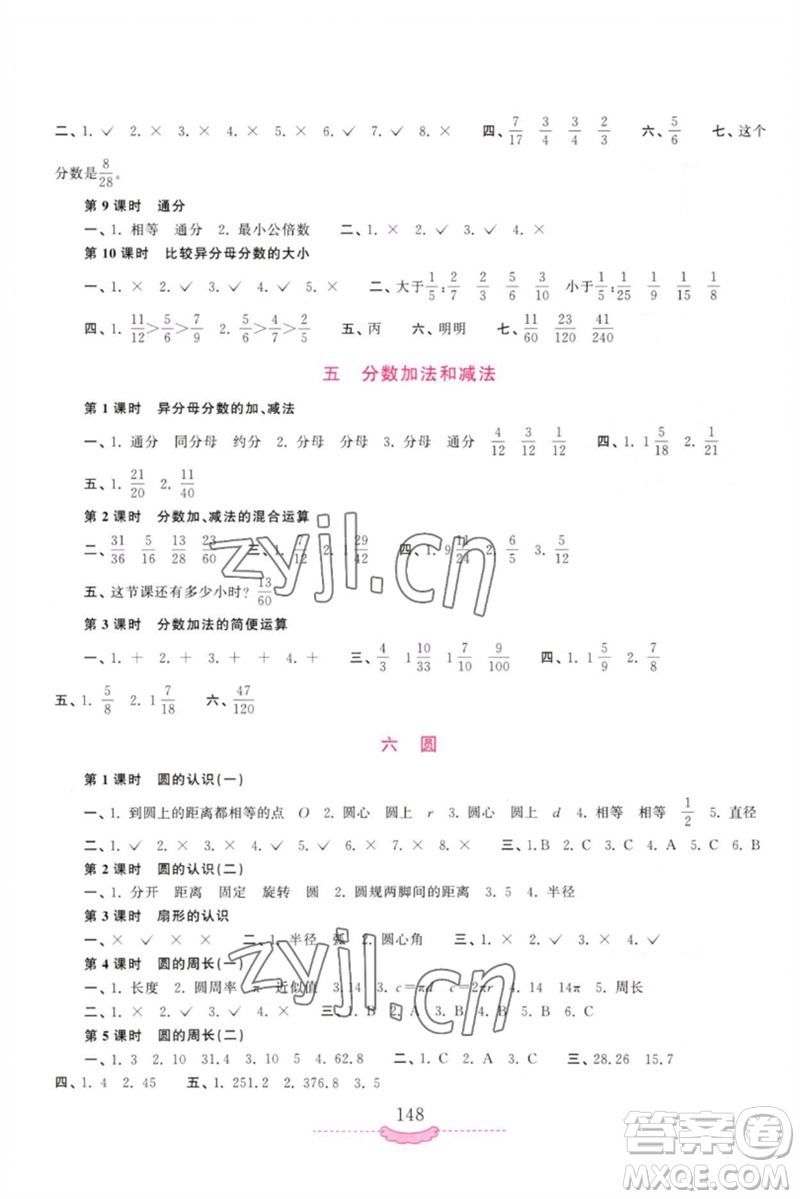 二、1. ✓ 2. × 3. × 4. × 5. × 6. ✓ 7. ✓ 8. ✓ 9. × 四、7/17 3/4 3/4 2/3 六、5/6 七、这个
分数是8/28。
第 9 课时 通分
一、1. 相等 通分 2. 最小公倍数 二、1. × 2. ✓ 3. ✓ 4. ×
第 10 课时 比较异分母分数的大小
一、1. × 2. ✓ 3. ✓ 4. ✓ 5. × 二、大于1/5:2/7 2/3 5/6 3/10 小于1/5:1/25 1/9 1/15 1/8
四、1. 11/12>5/6>7/9 2. 5/7>4/7>2/5 五、丙 六、明明 七、11/60 23/120 41/240
五 分数加法和减法
第 1 课时 异分母分数的加、减法
一、1. 通分 同分母 约分 2. 分母 分母 3. 分母 通分 4/12 3/12 7/12 四、1. 1 5/18 2. 1/21
五、1. 21/20 2. 11/40
第 2 课时 分数加、减法的混合运算
二、31/36 5/16 13/28 23/60 三、1. 7/12 2. 1 29/42 四、1. 9 11/24 2. 6/5 3. 5/12
五、这节课还有多少小时? 13/60
第 3 课时 分数加法的简便运算
一、1. + 2. + 3. + + 4. + 三、4/3 1 10/33 1 7/10 9/100 四、1. 1 5/9 2. 7/8
五、1. 5/8 2. 1 7/18 六、47/120
六 圆
第 1 课时 圆的认识(一)
一、1. 到圆上的距离都相等的点 O 2. 圆心 圆上 r 3. 圆心 圆上 d 4. 相等 相等 1/2 5. 直径
二、1. ✓ 2. × 3. ✓ 4. × 5. × 6. × 7. ✓ 8. × 三、1. B 2. C 3. C 4. A 5. C 6. B
第 2 课时 圆的认识(二)
一、1. 分开 距离 固定 旋转 圆 2. 圆规两脚间的距离 3. 5 4. 半径
第 3 课时 扇形的认识
一、× ✓ × × 二、1. 半径 弧 2. 圆心角 三、1. ✓ 2. × 3. × 4. ✓
第 4 课时 圆的周长(一)
一、1. 长度 2. 圆周率 π 近似值 3.14 3. c=πd c=2πr 4. 14 14π 5. 周长
二、1. × 2. × 3. × 4. ✓ 5. × 三、1. B 2. A 3. B
第 5 课时 圆的周长(二)
一、1. 3 2. 10 31.4 3. 10 5 4. 62.8 二、1. C 2. A 3. C 三、28.26 15.7
四、1. 4 2. 45 五、1. 251.2 2. 376.8 3. 5
148
zyjl.cn
zyjl.cn
答案圈
MXQE.COM